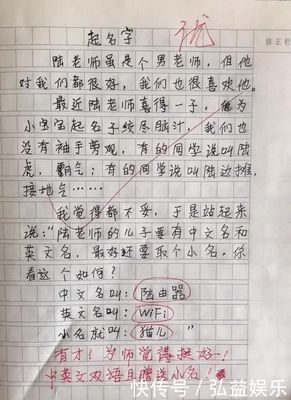 起名字
陆老师虽是个男老师，但他
对我们都很好，我们也很喜欢他。
最近陆老师喜得一子，为
小宝宝起名子绞尽脑汁，我们也
没有袖手旁观，有的同学说叫陆
虎，霸气；有的同学说叫陆边摊，
接地气……
我觉得都不妥，于是站起来
说："陆老师的儿子要有中文名和
英文名，最好还要取个小名，你
看这个如何？
中文名叫：陆由器
英文名叫：WiFi
小名就叫：猫儿"
有才！为师觉得挺好！
中英文双语且赠送小名！
快传号/弘益娱乐